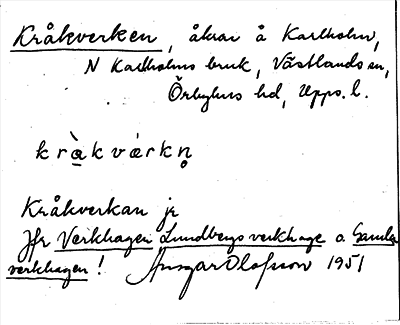 Kråkverken, åkrar å Karlholm,
N Karlholms bruk, Västlands sn,
Örbyhus hd, Upps. l.
kràkvárkn̥
Kråkverkan jr
Jfr Verkhagen Lundbergsverkhage o. Gamla
verkhagen! Ansgar Olofsson 1951